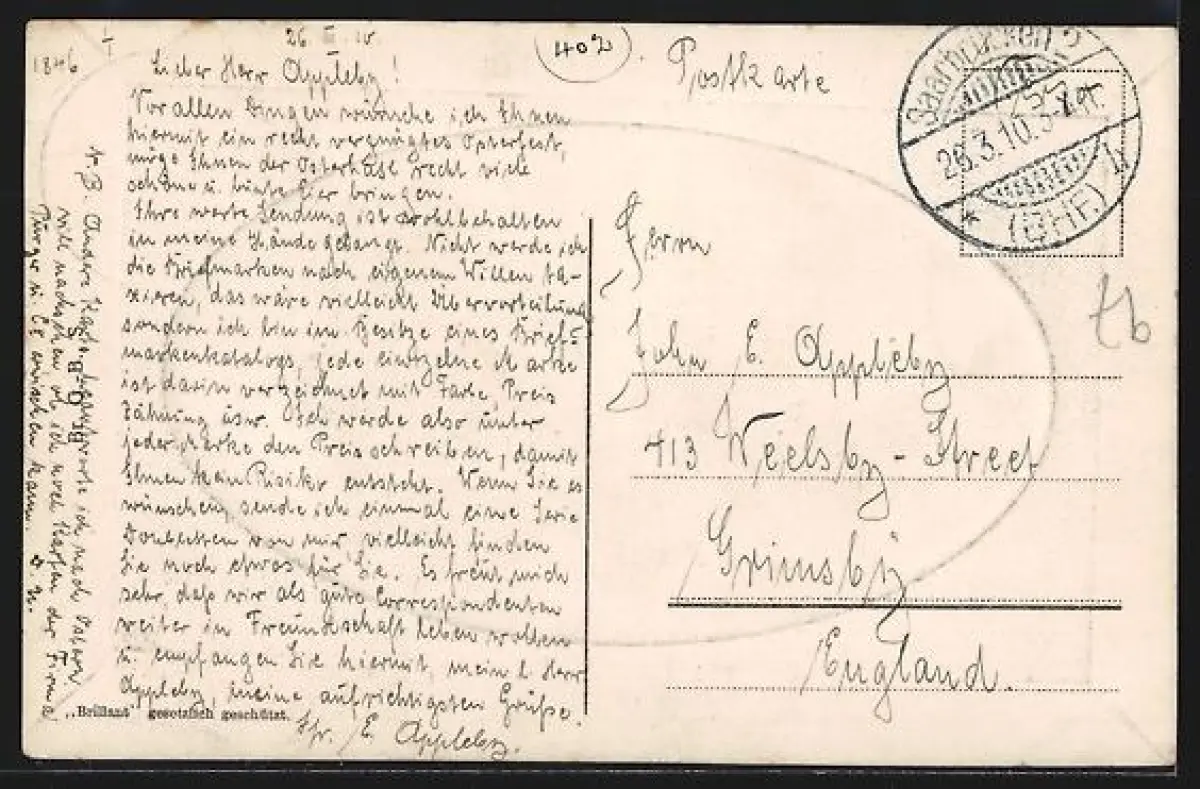 26. III. 10.
402
Postkarte
1846
Lieber Herr Appleby!
Vor allen Dingen wünsche ich Ihnen
hiermit ein recht vergnügtes Osterfest,
möge Ihnen der Osterhase recht viele
schöne u. bunte Eier bringen.
Ihre werte Sendung ist wohlbehalten
in meine Hände gelangt. Nicht werde ich
die Briefmarken nach eigenem Willen ta-
xieren, das wäre vielleicht Übervorteilung
sondern ich bin im Besitze eines Brief-
markenkatalogs, jede einzelne Marke
ist darin verzeichnet mit Farbe, Preis
Zähnung usw. Ich werde also unter
jeder Marke den Preis schreiben, damit
Ihnen kein Risiko entsteht. Wenn Sie es
wünschen, sende ich einmal eine Serie
Doubletten von mir, vielleicht finden
Sie noch etwas für Sie. Es freut mich
sehr, daß wir als gute Correspondenten
weiter in Freundschaft leben wollen
u. empfangen Sie hiermit, mein l. Herr
Appleby, meine aufrichtigsten Grüße.
E. Appleby.
"Brillant" gesetzlich geschützt.
N. B. Andere Karte beantworte ich nach Ostern
will nachsehen ob ich noch Karten der Firma
Bürger u. Co erwischen kann. D. O.
Saarbrücken 2
26.3.10.3-4N.
(BHF.)
b
Herrn
John E. Appleby
413 Weelsby-Street
Grimsby
England.